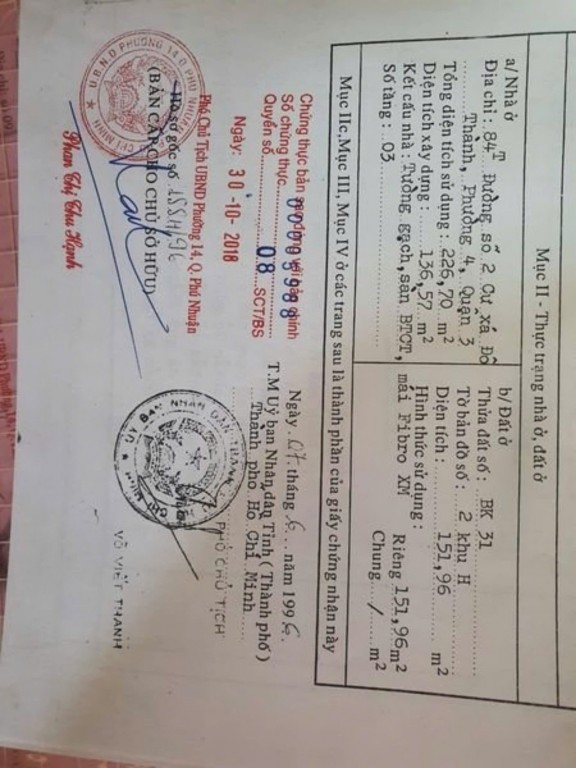 Mục II - Thực trạng nhà ở, đất ở
a/ Nhà ở
Địa chỉ: 84T Đường số 2 Cư xá Đô
Thành, Phường 4, Quận 3
Tổng diện tích sử dụng: 226,70 m2
Diện tích xây dựng: 136,57 m2
Kết cấu nhà: Tường gạch, sàn BTCT, mái Fibro XM
Số tầng: 03
b/ Đất ở
Thửa đất số: BK 31
Tờ bản đồ số: 2 khu H
Diện tích: 151,96 m2
Hình thức sử dụng:
Riêng 151,96 m2
Chung / m2
Mục IIc, Mục III, Mục IV ở các trang sau là thành phần của giấy chứng nhận này
Ngày 07 tháng 6 năm 1996.
T.M Uỷ ban Nhân dân Tỉnh (Thành phố)
Thành phố Hồ Chí Minh
PHÓ CHỦ TỊCH
ỦY BAN NHÂN DÂN THÀNH
VÕ VIẾT THANH
Chứng thực bản sao đúng với bản chính
Số chứng thực
Quyển số 08 SCT/BS
Ngày: 30-10-2018
Phó Chủ Tịch UBND Phường 14, Q. Phú Nhuận
Hồ sơ gốc số
(BẢN CẤP CHO CHỦ SỞ HỮU)
U.B.N.D PHƯỜNG 14 Q PHÚ NHUẬN
CHÍ MINH
Phan Thị Thu Hạnh